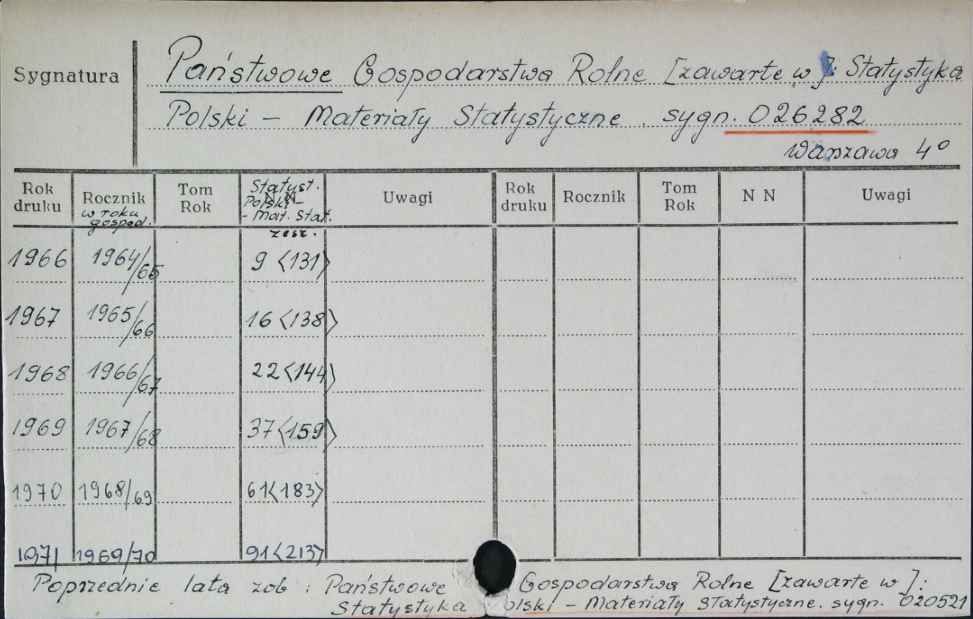 Sygnatura
Państwowe Gospodarstwa Rolne [zawarte w]: Statystyka
Polski — Materiały Statystyczne. sygn. 026282
Warszawa 4°
Rok druku Rocznik w roku gospod. Tom Rok Statyst. Polski - Mat. Stat. zesz. Uwagi Rok druku Rocznik Tom Rok N N Uwagi
1966 1964/65 9 <131>
1967 1965/66 16 <138>
1968 1966/67 22 <144>
1969 1967/68 37 <159>
1970 1968/69 61 <183>
1971 1969/70 91 <213>
Poprzednie lata zob: Państwowe Gospodarstwa Rolne [zawarte w]:
Statystyka olski — Materiały Statystyczne. sygn. 020521